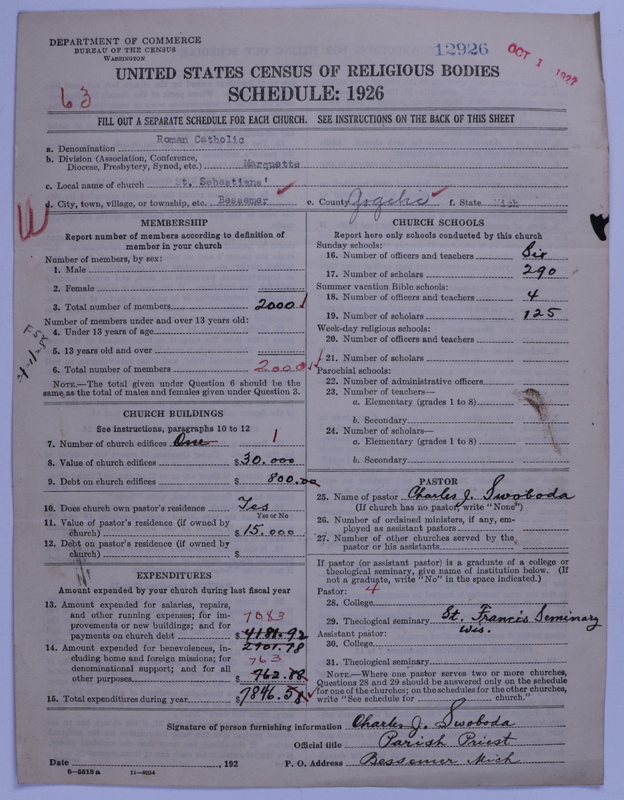 DEPARTMENT OF COMMERCE
BUREAU OF THE CENSUS
WASHINGTON
12926
OCT 1 1927
UNITED STATES CENSUS OF RELIGIOUS BODIES
63
SCHEDULE: 1926
FILL OUT A SEPARATE SCHEDULE FOR EACH CHURCH. SEE INSTRUCTIONS ON THE BACK OF THIS SHEET
a. Denomination Roman Catholic
b. Division (Association, Conference,
Diocese, Presbytery, Synod, etc.) Marquette
c. Local name of church St. Sebastians'
d. City, town, village, or township, etc. Bessemer e. County Gogebic f. State Mich
MEMBERSHIP
Report number of members according to definition of
member in your church
Number of members, by sex:
1. Male
2. Female
3. Total number of members 2000
Number of members under and over 13 years old:
4. Under 13 years of age
5. 13 years old and over
6. Total number of members 2000
NOTE.—The total given under Question 6 should be the
same as the total of males and females given under Question 3.
CHURCH BUILDINGS
See instructions, paragraphs 10 to 12
7. Number of church edifices One 1
8. Value of church edifices $30.000
9. Debt on church edifices $800.00
10. Does church own pastor's residence Yes
Yes or No
11. Value of pastor's residence (if owned by
church) $15.000
12. Debt on pastor's residence (if owned by
church) $
EXPENDITURES
Amount expended by your church during last fiscal year
13. Amount expended for salaries, repairs,
and other running expenses; for im-
provements or new buildings; and for
payments on church debt 7083 $4181.92
2901.78
14. Amount expended for benevolences, in-
cluding home and foreign missions; for
denominational support; and for all
other purposes 763 $762.88
15. Total expenditures during year $7846.58
CHURCH SCHOOLS
Report here only schools conducted by this church
Sunday schools:
16. Number of officers and teachers Six
17. Number of scholars 290
Summer vacation Bible schools:
18. Number of officers and teachers 4
19. Number of scholars 125
Week-day religious schools:
20. Number of officers and teachers
21. Number of scholars
Parochial schools:
22. Number of administrative officers
23. Number of teachers—
a. Elementary (grades 1 to 8)
b. Secondary
24. Number of scholars—
a. Elementary (grades 1 to 8)
b. Secondary
PASTOR
25. Name of pastor Charles J. Swoboda
(If church has no pastor, write "None")
26. Number of ordained ministers, if any, em-
ployed as assistant pastors
27. Number of other churches served by the
pastor or his assistants
If pastor (or assistant pastor) is a graduate of a college or
theological seminary, give name of institution below. (If
not a graduate, write "No" in the space indicated.)
Pastor: 4
28. College
29. Theological seminary St. Francis Seminary
Wis.
Assistant pastor:
30. College
31. Theological seminary
NOTE.—Where one pastor serves two or more churches,
Questions 28 and 29 should be answered only on the schedule
for one of the churches; on the schedules for the other churches,
write "See schedule for church."
Signature of person furnishing information Charles J. Swoboda
Official title Parish Priest
Date , 192 P. O. Address Bessemer Mich
8-5518a 11-9054